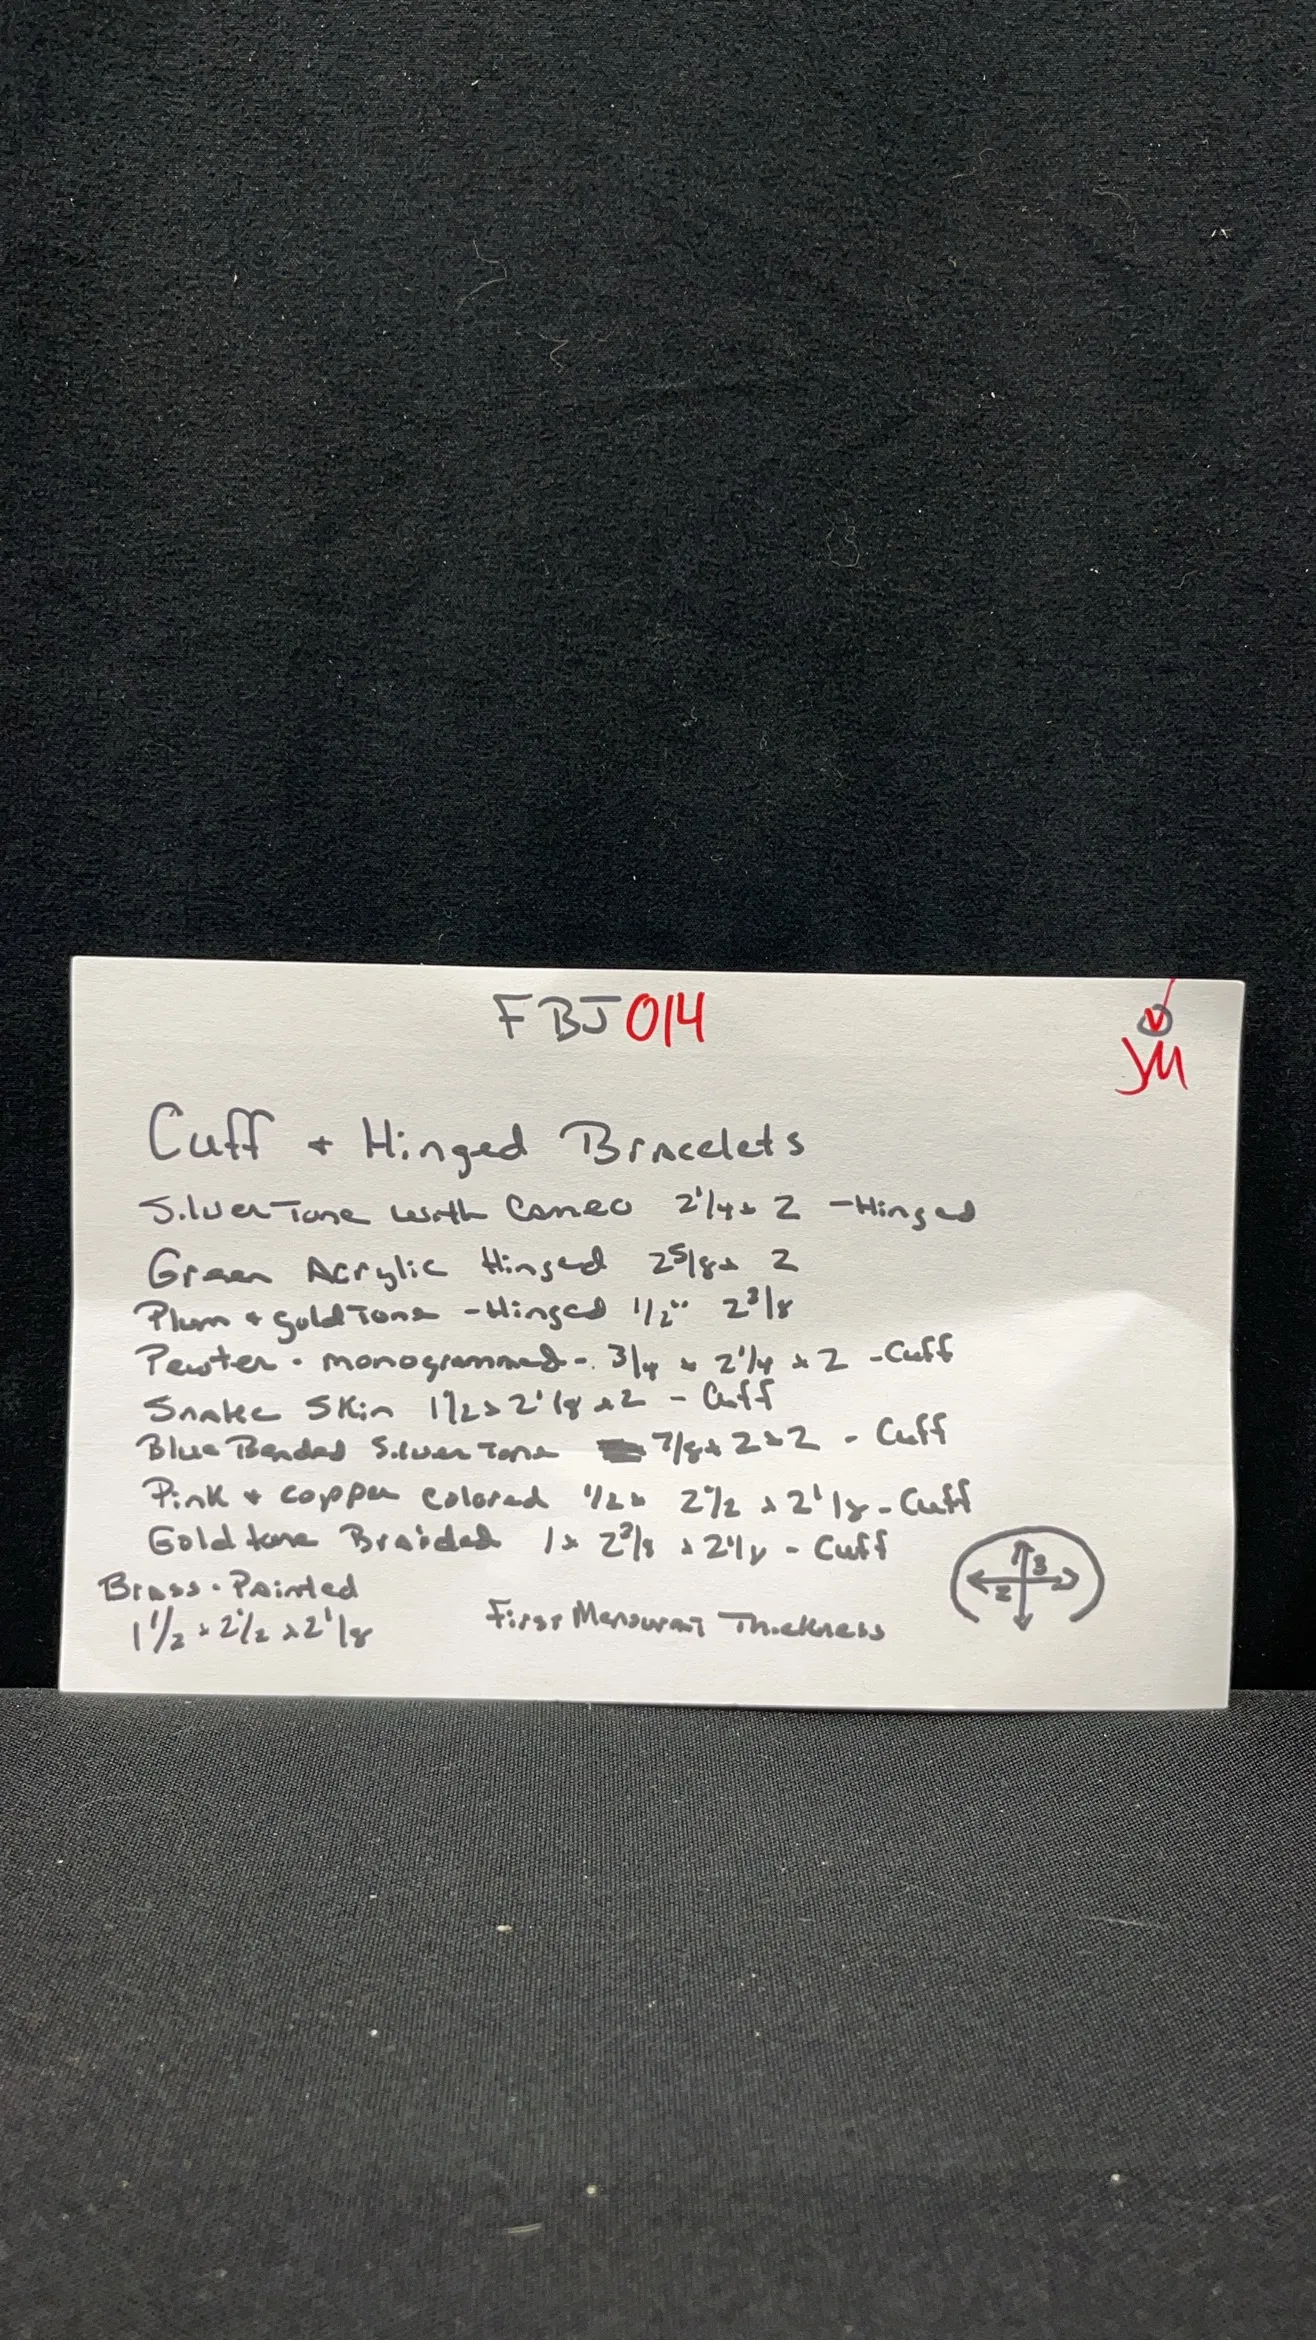 FBJ014
V
JM
Cuff + Hinged Bracelets
Silver Tone with Cameo 2 1/4 x 2 - Hinged
Green Acrylic Hinged 2 5/8 x 2
Plum + gold Tone - Hinged 1/2" 2 3/8
Pewter - monogrammed - 3/4 x 2 1/4 x 2 - Cuff
Snake Skin 1 1/2 x 2 1/8 x 2 - Cuff
Blue Beaded Silver Tone 7/8 x 2 x 2 - Cuff
Pink + copper colored 1/2 x 2 1/2 x 2 1/8 - Cuff
Gold tone Braided 1 x 2 3/8 x 2 1/8 - Cuff
Brass - Painted
1 1/2 x 2 1/2 x 2 1/8
First Thickness
3
2